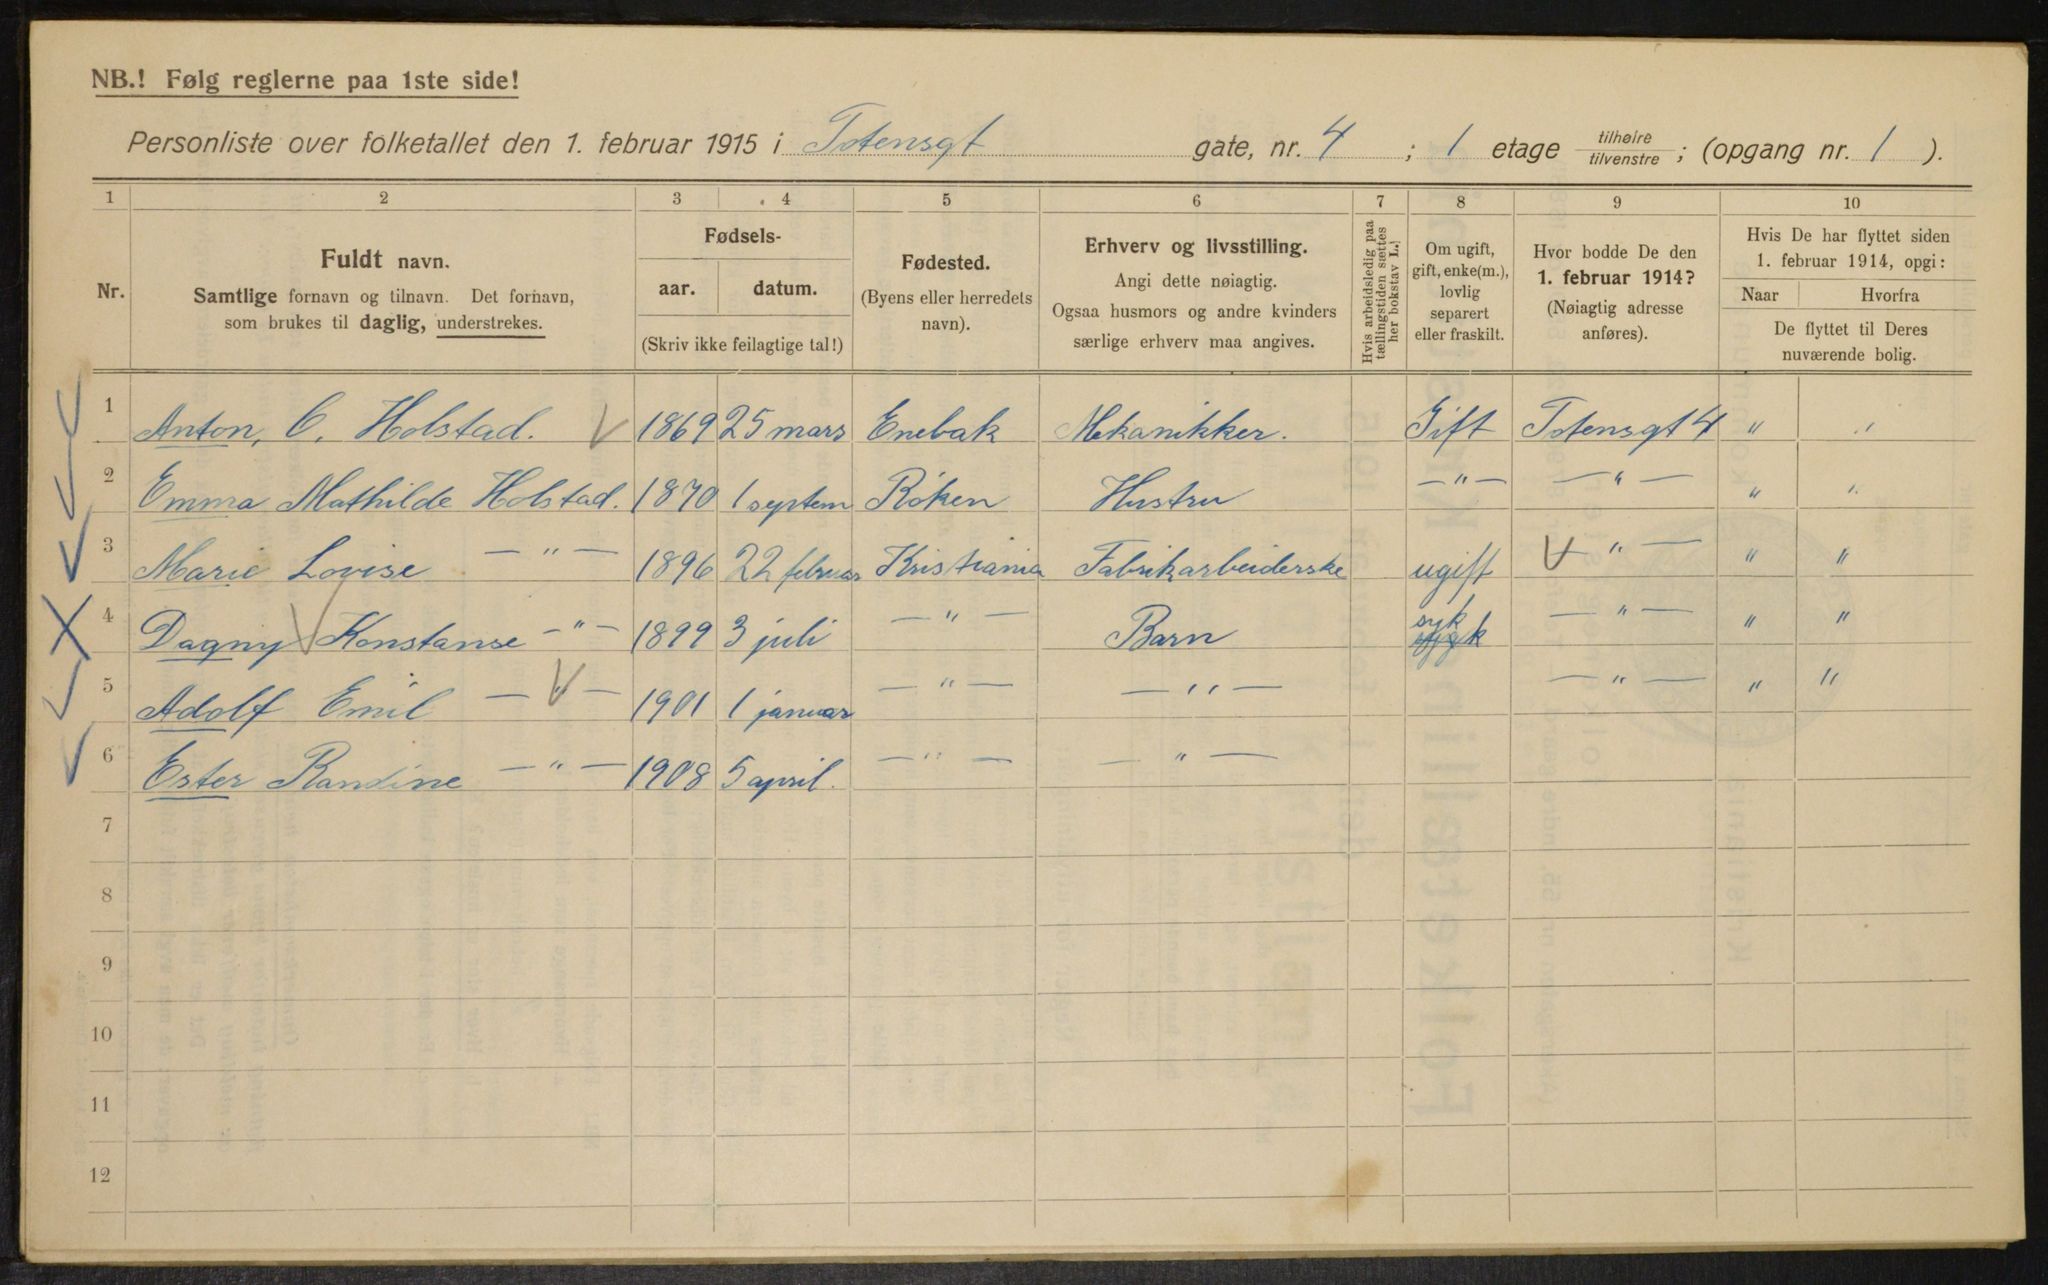 NB.! Følg reglerne paa 1ste side!
Personliste over folketallet den 1. februar 1915 i Totensgt gate, nr. 4 ; 1 etage tilhøire/tilvenstre ; (opgang nr. 1 ).
1 2 3 4 5 6 7 8 9 10
Nr.
Fuldt navn.
Samtlige fornavn og tilnavn. Det fornavn,
som brukes til daglig, understrekes.
Fødsels-
aar. datum.
(Skriv ikke feilagtige tal!)
Fødested.
(Byens eller herredets
navn).
Erhverv og livsstilling.
Angi dette nøiagtig.
Ogsaa husmors og andre kvinders
særlige erhverv maa angives.
Hvis arbeidsledig paa
tællingstiden sættes
her bokstav L.
Om ugift,
gift, enke(m.),
lovlig
separert
eller fraskilt.
Hvor bodde De den
1. februar 1914?
(Nøiagtig adresse
anføres).
Hvis De har flyttet siden
1. februar 1914, opgi:
Naar Hvorfra
De flyttet til Deres
nuværende bolig.
1 Anton, C. Holstad. 1869 25 mars Enebak Mekanikker. Gift Totensgt 4 " "
2 Emma Mathilde Holstad. 1870 1 septem Røken Hustru — " — — " — " "
3 Marie Lovise — " — 1896 22 februar Kristiania Fabrikarbeiderske ugift — " — " "
4 Dagny Konstanse — " — 1899 3 juli — " — Barn syk — " — " "
5 Adolf Emil — " — 1901 1 januar — " — — " — — " — " "
6 Ester Randine — " — 1908 5 april. — " — — " —
7
8
9
10
11
12